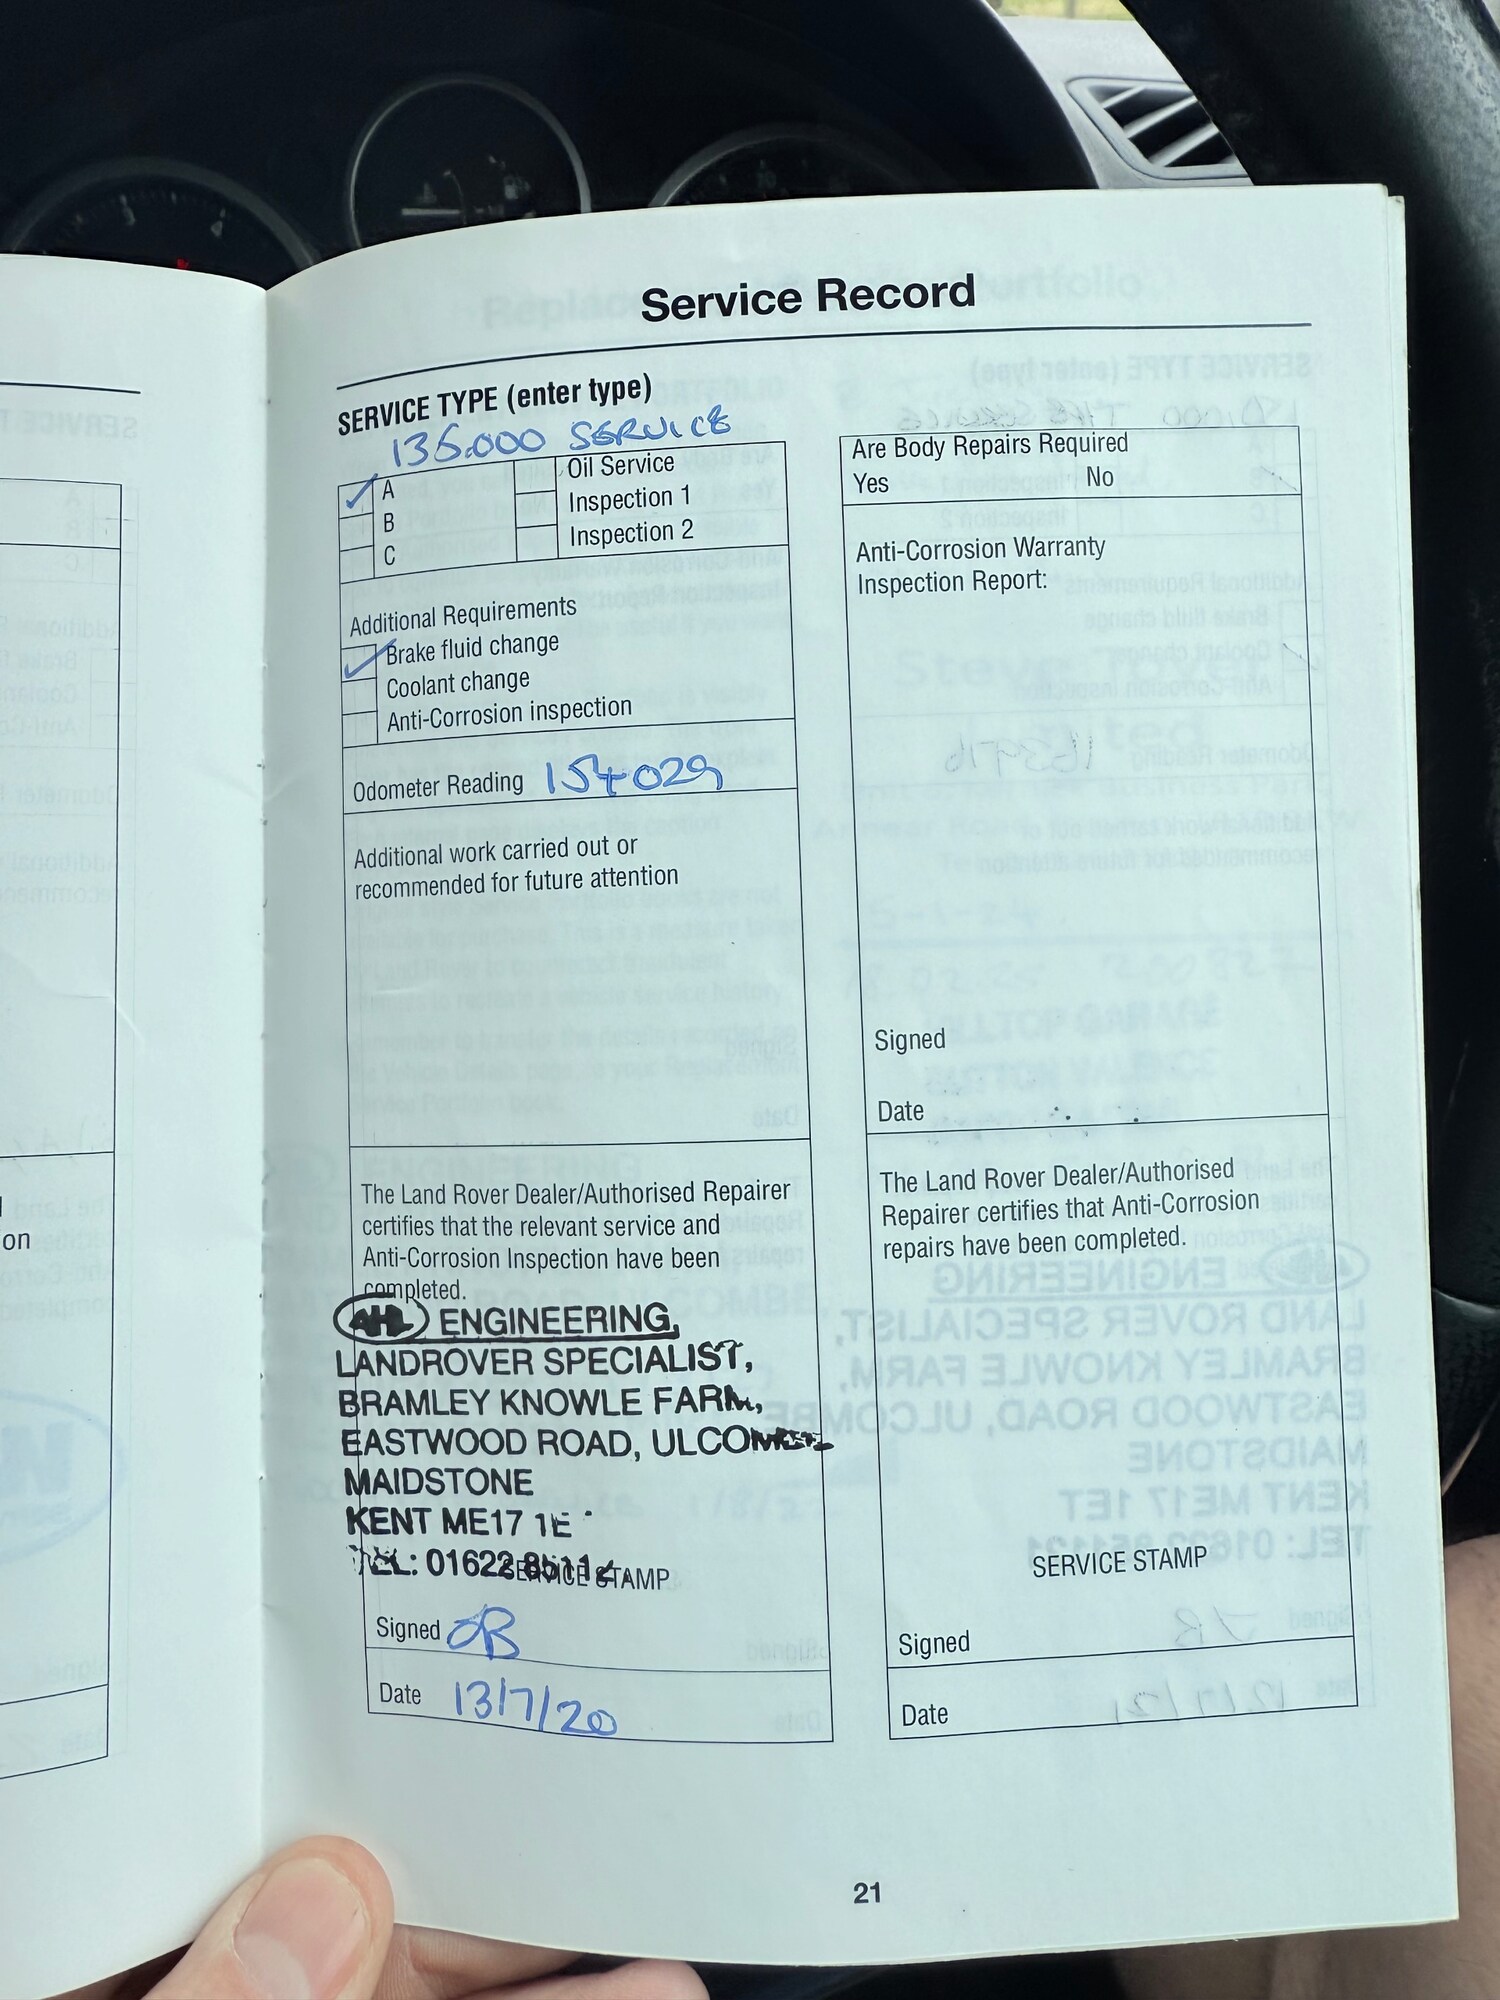 Service Record
SERVICE TYPE (enter type)
135.000 SERVICE
A
B
C
Oil Service
Inspection 1
Inspection 2
Additional Requirements
Brake fluid change
Coolant change
Anti-Corrosion inspection
Odometer Reading 154029
Additional work carried out or
recommended for future attention
The Land Rover Dealer/Authorised Repairer
certifies that the relevant service and
Anti-Corrosion Inspection have been
completed.
AHL ENGINEERING,
LANDROVER SPECIALIST,
BRAMLEY KNOWLE FARM,
EASTWOOD ROAD, ULCOMBE
MAIDSTONE
KENT ME17 1E
TEL: 01622
SERVICE STAMP
Signed JB
Date 13/7/20
Are Body Repairs Required
Yes No
Anti-Corrosion Warranty
Inspection Report:
Signed
Date
The Land Rover Dealer/Authorised
Repairer certifies that Anti-Corrosion
repairs have been completed.
SERVICE STAMP
Signed
Date
21
on